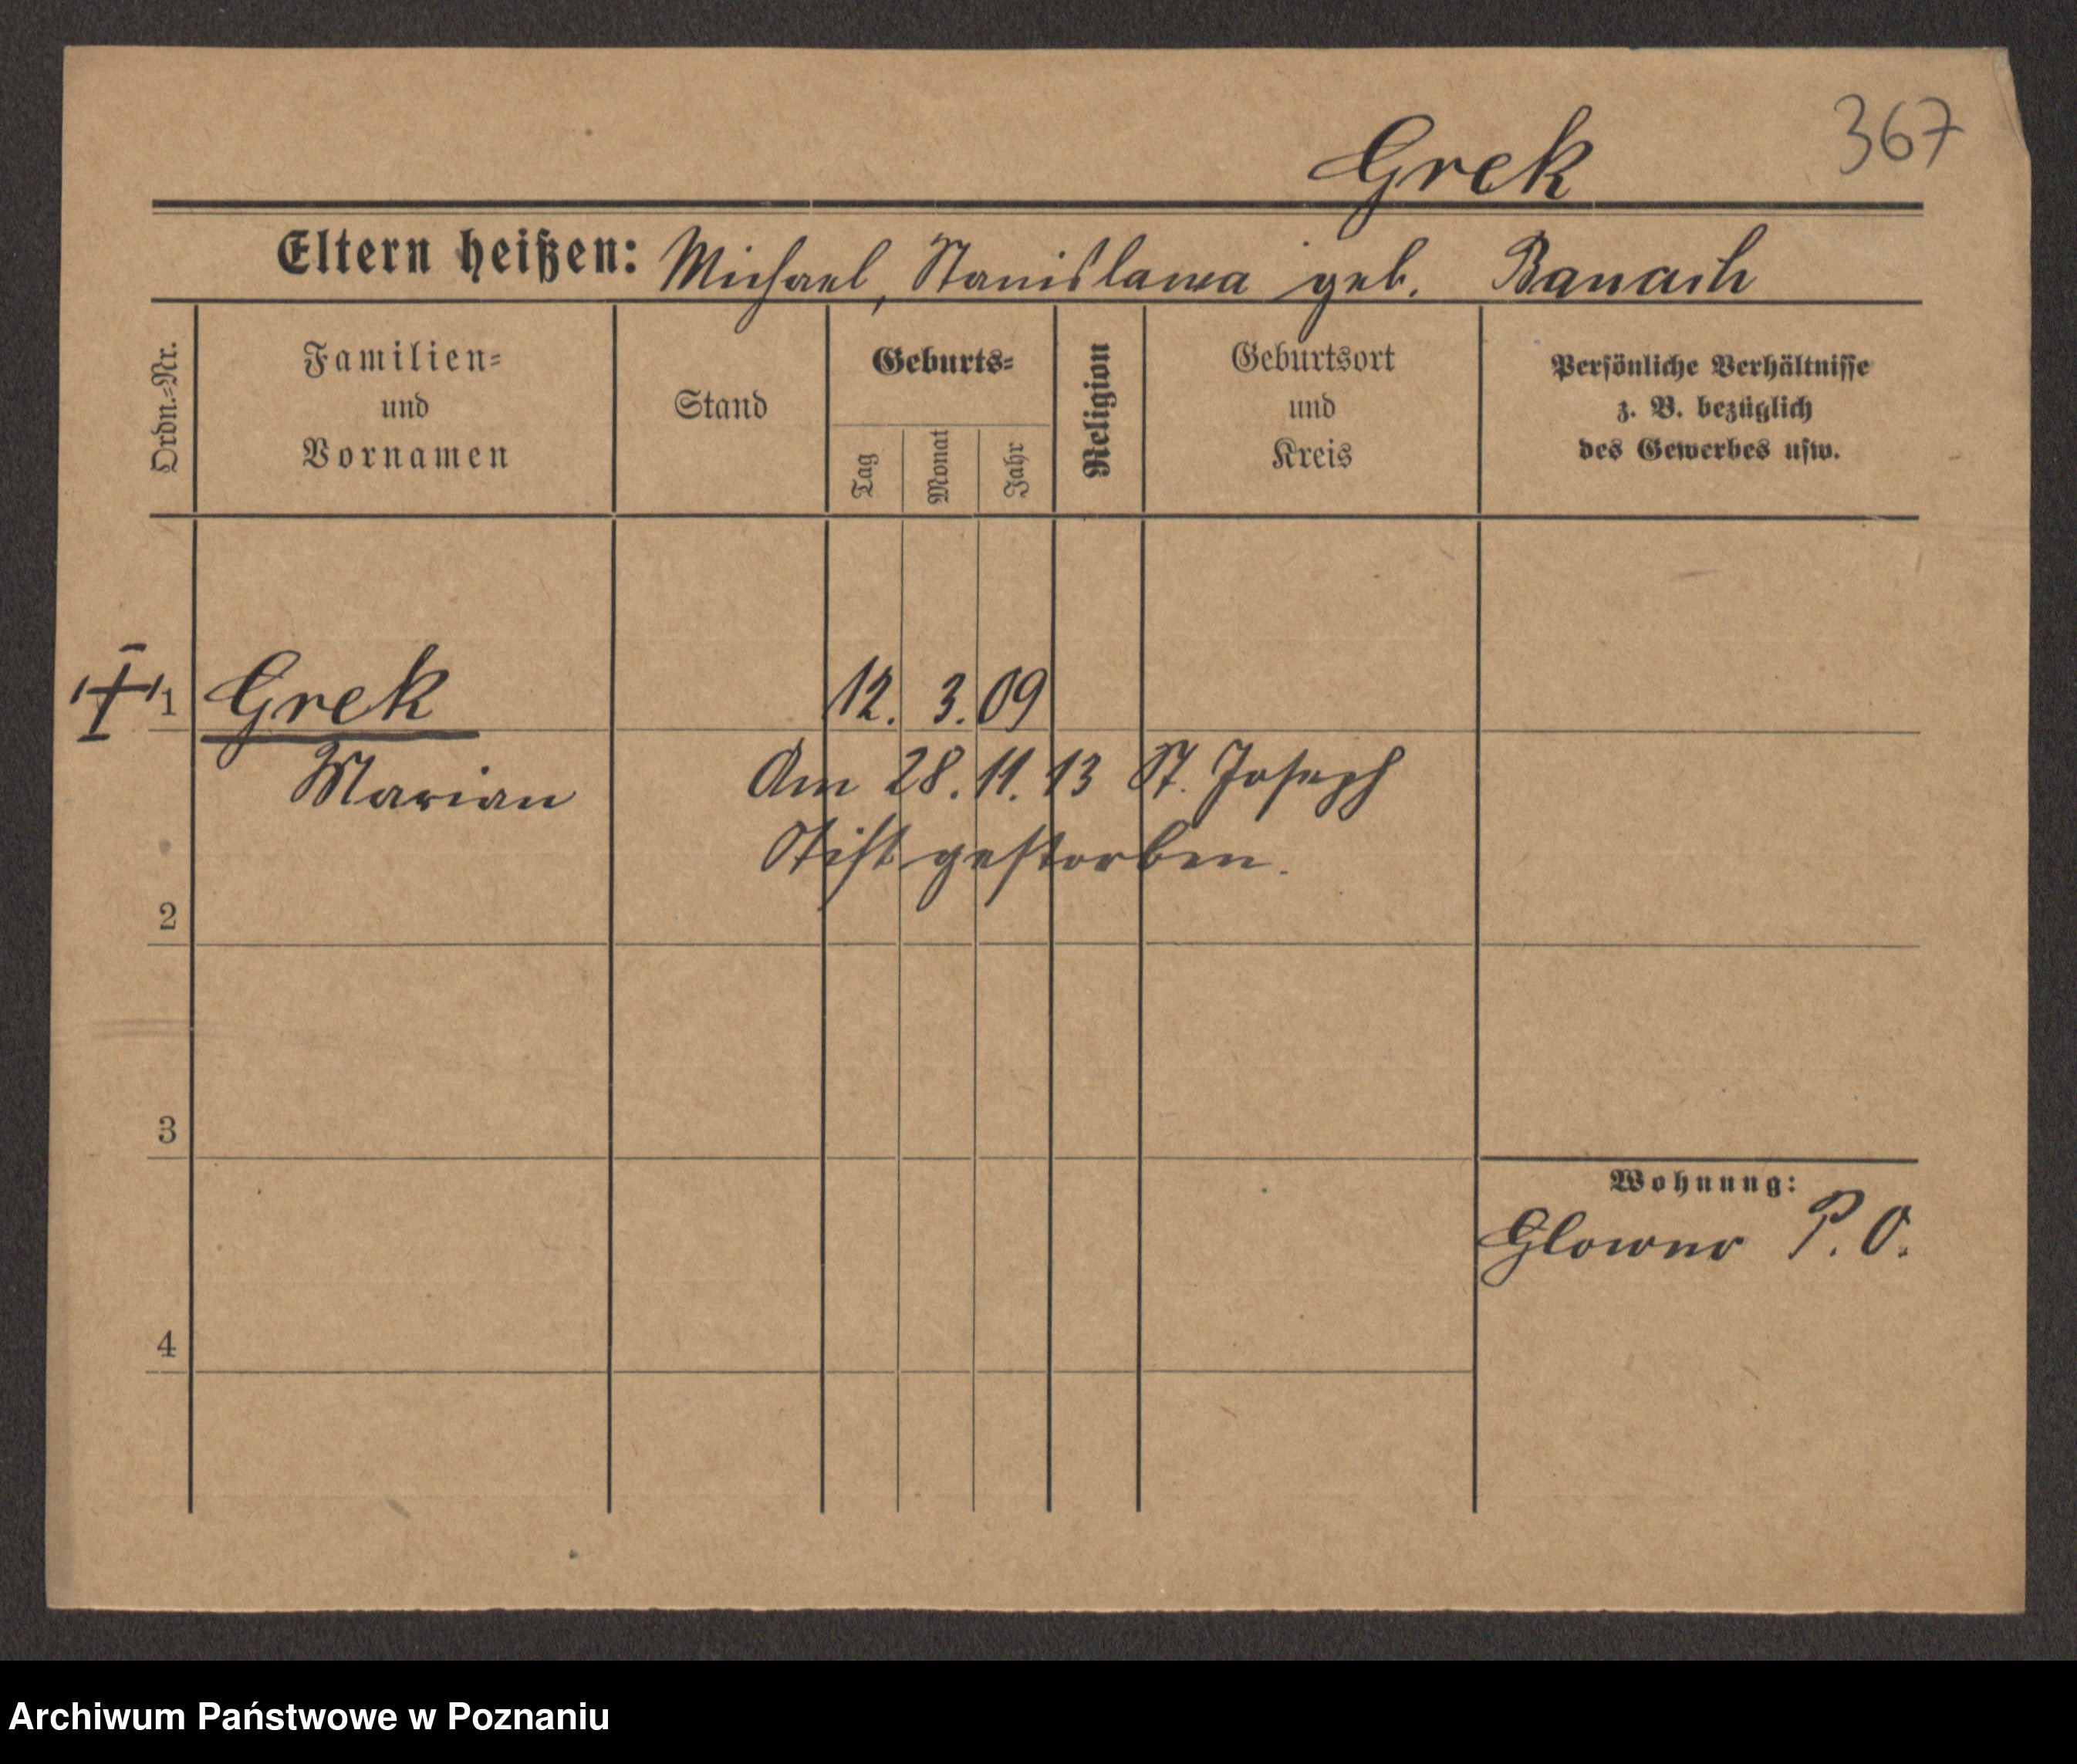 367
Grek
Eltern heißen: Michael, Stanislawa geb. Banach
Ordn.-Nr.
Familien-
und
Vornamen
Stand
Geburts-
Tag
Monat
Jahr
Religion
Geburtsort
und
Kreis
Persönliche Verhältnisse
z. B. bezüglich
des Gewerbes usw.
1 Grek 12. 3. 09
Marian Am 28. 11. 13 St. Joseph
Stift gestorben.
2
3
Wohnung:
Glowno P. O.
4
Archiwum Państwowe w Poznaniu